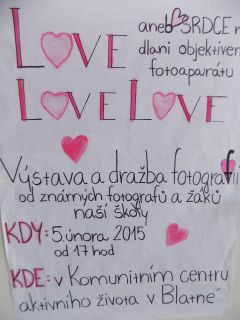 LOVE aneb SRDCE n
dlani objektivem
fotoaparátu
LOVE LOVE
Výstava a dražba fotografií
od známých fotografů a žáků
naší školy
KDY: 5. února 2015
od 17 hod
KDE: v Komunitním centru
aktivního života v Blatné